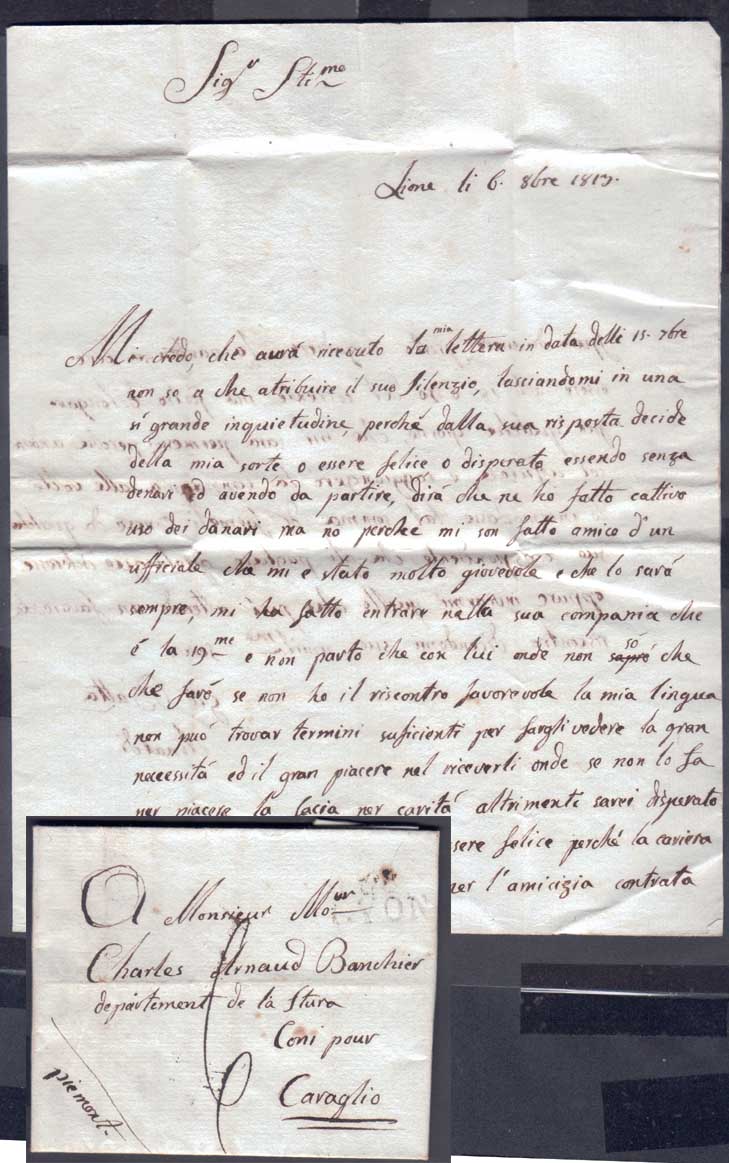 Sig.r Sti.me
Lione li 6. 8bre 1813.
Mi credo, che aurá ricevuto la mia lettera in data delli 15. 7bre
non so a che atribuire il suo silenzio, lasciandomi in una
sí grande inquietudine, perché dalla sua risposta decide
della mia sorte o essere felice o disperato essendo senza
denari ed avendo da partire, dirá che ne ho fatto cattivo
uso dei danari ma no perché mi son fatto amico d'un
ufficiale che mi e stato molto giovevole e che lo sará
sempre, mi ha fatto entrare nella sua compania che
é la 19me e non parto che con lui onde non sapró só che
che faró se non ho il riscontro favorevole la mia lingua
non puó trovar termini suficienti per fargli vedere la gran
necessitá ed il gran piacere nel riceverli onde se non lo fa
per piacere la facia per caritá altrimenti sarei disperato
ssere felice perché la cariera
per l'amicizia contrata
A Monsieur Mo.ur
Charles Arnaud Banchier
departement de la Stura
Coni pour
Caraglio
piemont.
6